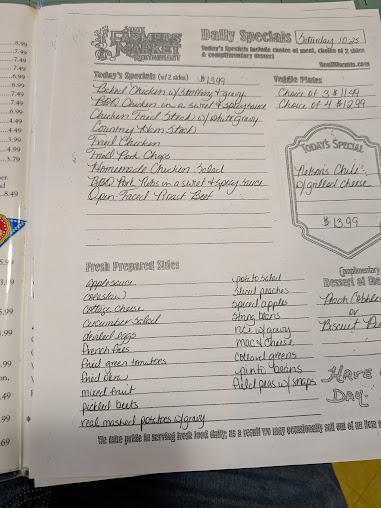 8.99
7.49
6.99
7.49
6.49
6.49
7.49
4.49
4.49
3.79
8.49
THE
FARMERS
MARKET
RESTAURANT
Daily Specials Saturday 10.23
Today's Specials include choice of meat, choice of 2 sides
& complimentary dessert
Today's Specials (w/2 sides) $13.99
Baked Chicken w/ Stuffing & gravy
BBQ Chicken in a sweet & spicy sauce
Chicken Fried Steak w/ white gravy
Country Ham Steak
Fried Chicken
Fried Pork Chops
Homemade Chicken Salad
BBQ Pork Ribs in a sweet & spicy sauce
Open Faced Roast Beef
Veggie Plates
Choice of 3 $11.99
Choice of 4 $12.99
TODAY'S SPECIAL
Nelson's Chili
w/ grilled cheese
$13.99
Fresh Prepared Sides
applesauce
coleslaw
cottage cheese
cucumber salad
deviled eggs
french fries
fried green tomatoes
fried okra
mixed fruit
pickled beets
real mashed potatoes w/ gravy
potato salad
sliced peaches
spiced apples
string beans
rice w/ gravy
mac & cheese
collard greens
pinto beans
field peas w/ snaps
Complimentary
Dessert of the
Peach Cobbler
or
Biscuit
HAVE
DAY.
We take pride in serving fresh food daily; as a result we may occasionally sell out of an item